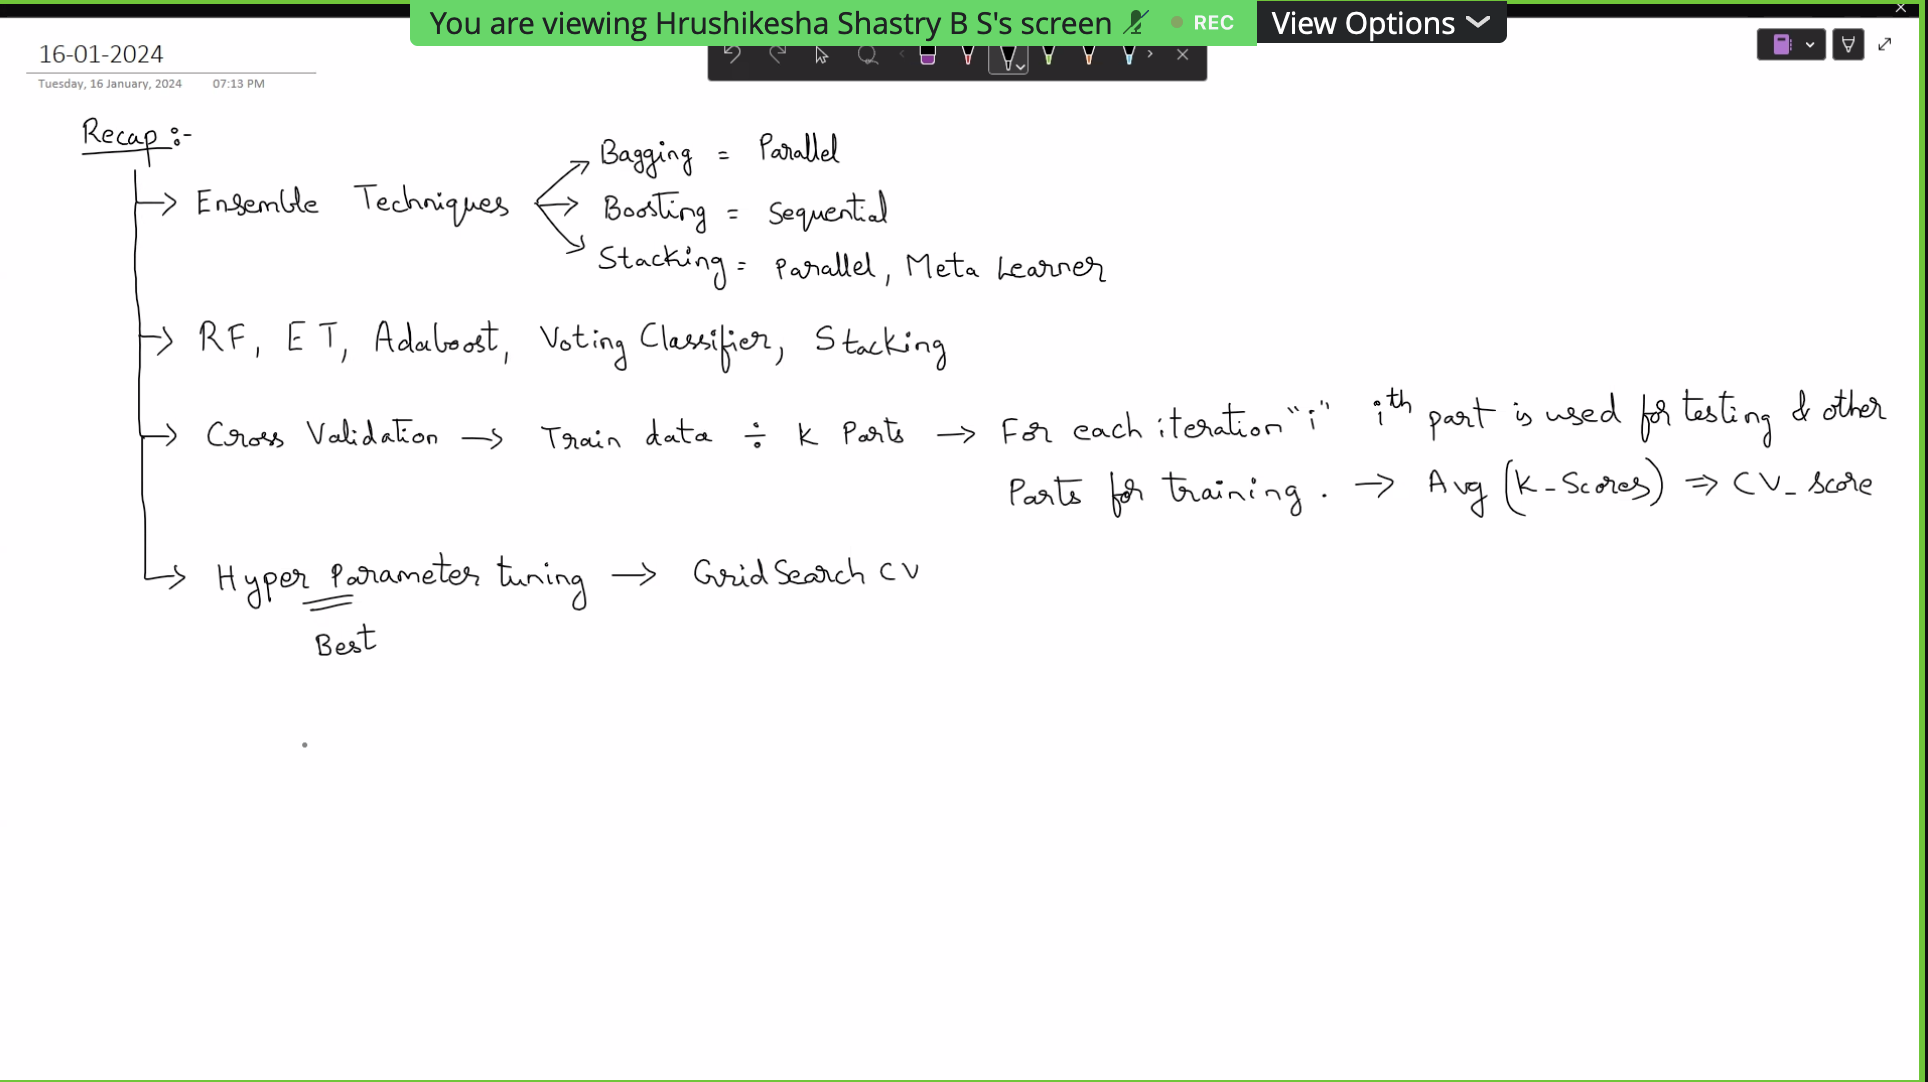 You are viewing Hrushikesha Shastry B S's screen REC View Options
16-01-2024
Tuesday, 16 January, 2024 07:13 PM
Recap :-
Ensemble Techniques
Bagging = Parallel
Boosting = Sequential
Stacking = Parallel, Meta Learner
RF, ET, Adaboost, Voting Classifier, Stacking
Cross Validation → Train data ÷ K Parts → For each iteration "i" ith part is used for testing & other
Parts for training. → Avg (K-Scores) ⇒ CV_score
Hyper Parameter tuning → GridSearch CV
Best